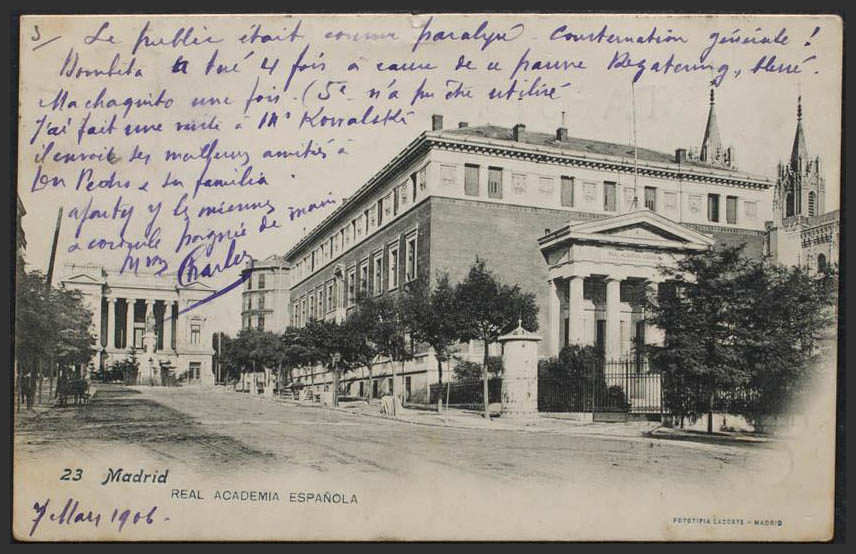 5/ Le public était comme paralysé. Consternation générale !
Bombita a tué 4 fois à cause de ce pauvre blessé.
Machaquito une fois. (5e n'a pu être utilisé
J'ai fait une visite à Mr Kowalski
il envoie ses meilleures amitiés à
Don Pedro & su familia
ajoutez y les miennes
& cordiale poignée de main
Charles
REAL ACADEMIA ESPAÑOLA
23 Madrid
REAL ACADEMIA ESPAÑOLA
7 Mars 1906.
FOTOTIPIA LACOSTE - MADRID